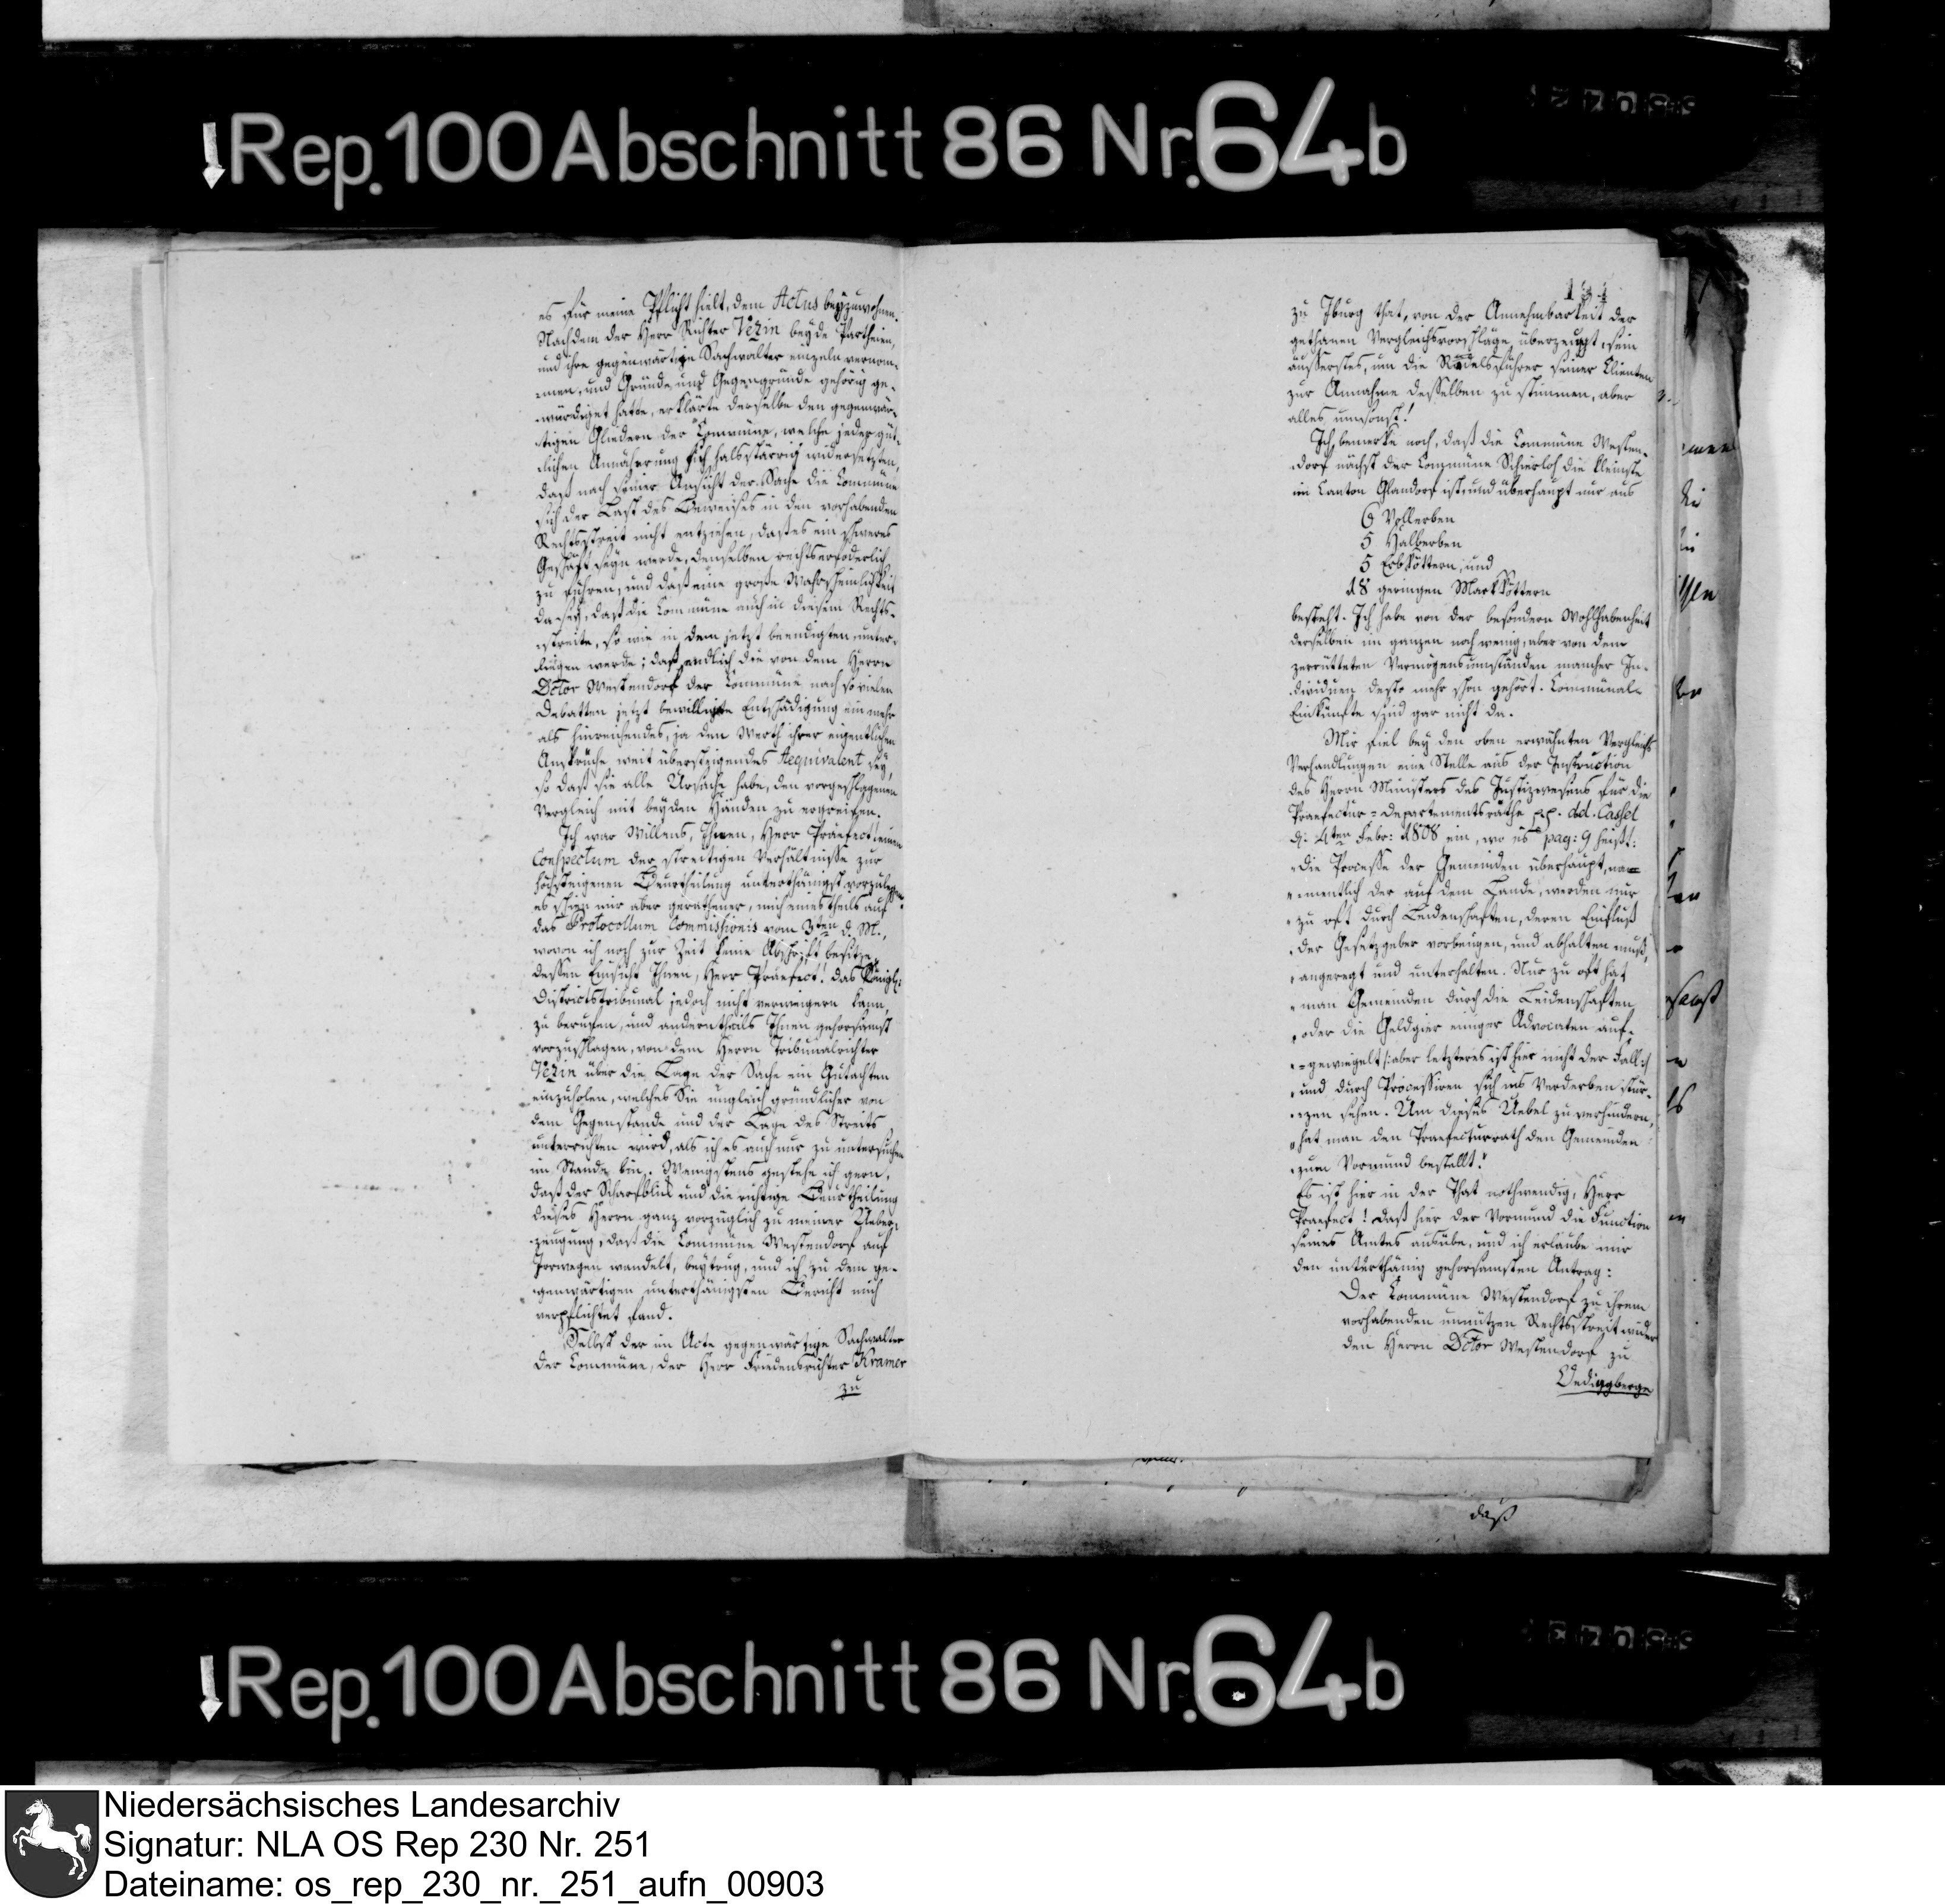 Rep. 100 Abschnitt 86 Nr. 64 b
es für meine Pflicht hielt, dem Actus beyzuwohnen.
Nachdem der Herr Richter Vezin beyde Partheien,
und ihre gegenwärtige Sachwalter einzeln vernom-
-men, und Gründe und Gegengründe gehörig ge-
-würdiget hatte, erklärte derselbe den gegenwär-
-tigen Gliedern der Commüne, welche jeder güt-
-lichen Annäherung sich halsstarrig widersetzten,
daß nach seiner Ansicht der Sache die Commüne
sich der Last des Beweises in dem vorhabenden
Rechtsstreit nicht entziehen, daß es ein schweres
Geschäft seyn werde, denselben rechtserfoderlich
zu führen, und daß eine große Wahrscheinlichkeit
da sey, daß die Commüne auch in diesem Rechts-
-streite, so wie in dem jetzt beendigten, unter-
-liegen werde; daß endlich die von dem Herrn
Dctor Westendorf der Commüne nach so vielen
Debatten jetzt bewilligte Entschädigung ein mehr
als hinreichendes, ja den Werth ihrer eigentlichen
Ansprüche weit übersteigendes Aequivalent sey,
so daß sie alle Ursache habe, den vorgeschlagenen
Vergleich mit beyden Händen zu ergreifen.
Ich war Willens, Ihnen, Herr Praefect! einen
Conspectum der streitigen Verhältnisse zur
höchsteigenen Beurtheilung unterthänigst vorzulegen,
es schien mir aber gerathener, mich eines theils auf
das Protocollum Commissionis vom 3ten d. M.,
wovon ich noch zur Zeit keine Abschrift besitze,
dessen Einsicht Ihnen, Herr Praefect! das Königl:
Districtstribunal jedoch nicht verweigern kann,
zu berufen, und andern theils Ihnen gehorsamst
vorzuschlagen, von dem Herrn Tribunalrichter
Vezin über die Lage der Sache ein Gutachten
einzuholen, welches Sie ungleich gründlicher von
dem Gegenstande und der Lage des Streits
unterrichten wird, als ich es auch nur zu untersuchen
im Stande bin. Wenigstens gestehe ich gern,
daß der Scharfblick und die richtige Beurtheilung
dieses Herrn ganz vorzüglich zu meiner Ueber-
-zeugung, daß die Commüne Westendorf auf
Irrwegen wandelt, beytrug, und ich zu dem ge-
-genwärtigen unterthänigsten Bericht mich
verpflichtet fand.
Selbst der im Acte gegenwärtige Sachwalter
der Commüne, der Herr Friedensrichter Kramer
zu
zu Iburg that, von der Annehmbarkeit der
gethanen Vergleichsvorschläge überzeugt, sein
äusserstes, um die Rädelsführer seiner Clienten
zur Annahme desselben zu stimmen, aber
alles umsonst!
Ich bemerke noch, daß die Commüne Westen-
-dorf nächst der Commüne Schierloh die kleinste
im Canton Glandorf ist, und überhaupt nur aus
6 Vollerben
5 Halberben
5 Erbköttern, und
18 geringen Markköttern
besteht. Ich habe von der besondern Wohlhabenheit
derselben im ganzen noch wenig, aber von den
zerrütteten Vermögensumständen mancher In-
-dividuen desto mehr schon gehört. Commünal-
Einkünfte sind gar nicht da.
Mir fiel bey den oben erwähnten Vergleichs
Verhandlungen eine Stelle aus der Instruction
des Herrn Ministers des Justizwesens für die
Praefectur-Departementsräthe pp. dd. Cassel
d. 4ten Febr: 1808 ein, wo es pag: 9 heißt:
"die Processe der Gemeinden überhaupt, na-
"-mentlich der auf dem Lande, werden nur
"zu oft durch Leidenschaften, deren Einfluß
"der Gesetzgeber vorbeugen, und abhalten muß,
"angeregt und unterhalten. Nur zu oft hat
"man Gemeinden durch die Leidenschaften
"oder die Geldgier einiger Advocaten auf-
"-gewiegelt /: aber letzteres ist hier nicht der Fall :/
"und durch Processiren sich ins Verderben stür-
"-zen sehen. Um dieses Uebel zu verhindern,
"hat man den Praefecturrath den Gemeinden
"zum Vormund bestellt."
Es ist hier in der That nothwendig, Herr
Praefect! daß hier der Vormund die Function
seines Amtes ausübe, und ich erlaube mir
den unterthänig gehorsamsten Antrag:
Der Commüne Westendorf zu ihrem
vorhabenden unnützen Rechtsstreit wider
den Herrn Dctor Westendorf zu
Oedingberge
daß
Rep. 100 Abschnitt 86 Nr. 64 b
Niedersächsisches Landesarchiv
Signatur: NLA OS Rep 230 Nr. 251
Dateiname: os_rep_230_nr._251_aufn_00903